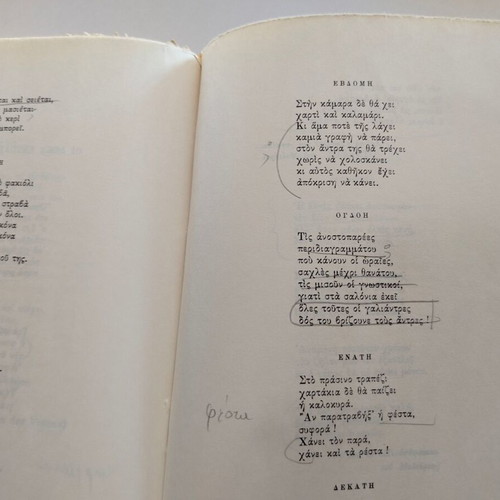 ται καὶ σειέται,
μασιέται·
κερὶ
μπορεῖ.
ὸ φακιόλι
δά,
στραβὰ
ν ὅλοι.
κόνα
κόνα
οῦ της.
ΕΒΔΟΜΗ
Στὴν κάμαρα δὲ θά χει
χαρτὶ καὶ καλαμάρι.
Κι ἄμα ποτὲ τῆς λάχει
καμιὰ γραφὴ νὰ πάρει,
στὸν ἄντρα της θὰ τρέχει
χωρὶς νὰ χολοσκάνει
κι αὐτὸς καθῆκον ἔχει
ἀπόκριση νὰ κάνει.
ΟΓΔΟΗ
Τὶς ἀνοστοπαρέες
περιδιαγραμμάτου
ποὺ κάνουν οἱ ὡραῖες,
σαχλὲς μέχρι θανάτου,
τὶς μισοῦν οἱ γνωστικοί,
γιατὶ στὰ σαλόνια ἐκεῖ
ὅλες τοῦτες οἱ γαλιάντρες
δός του βρίζουνε τοὺς ἄντρες!
ΕΝΑΤΗ
Στὸ πράσινο τραπέζι
χαρτάκια δὲ θὰ παίζει
ἡ καλοκυρά.
Ἂν παρατραβήξ' ἡ φέστα,
συφορά!
Χάνει τὸν παρά,
χάνει καὶ τὰ ρέστα!
ΔΕΚΑΤΗ